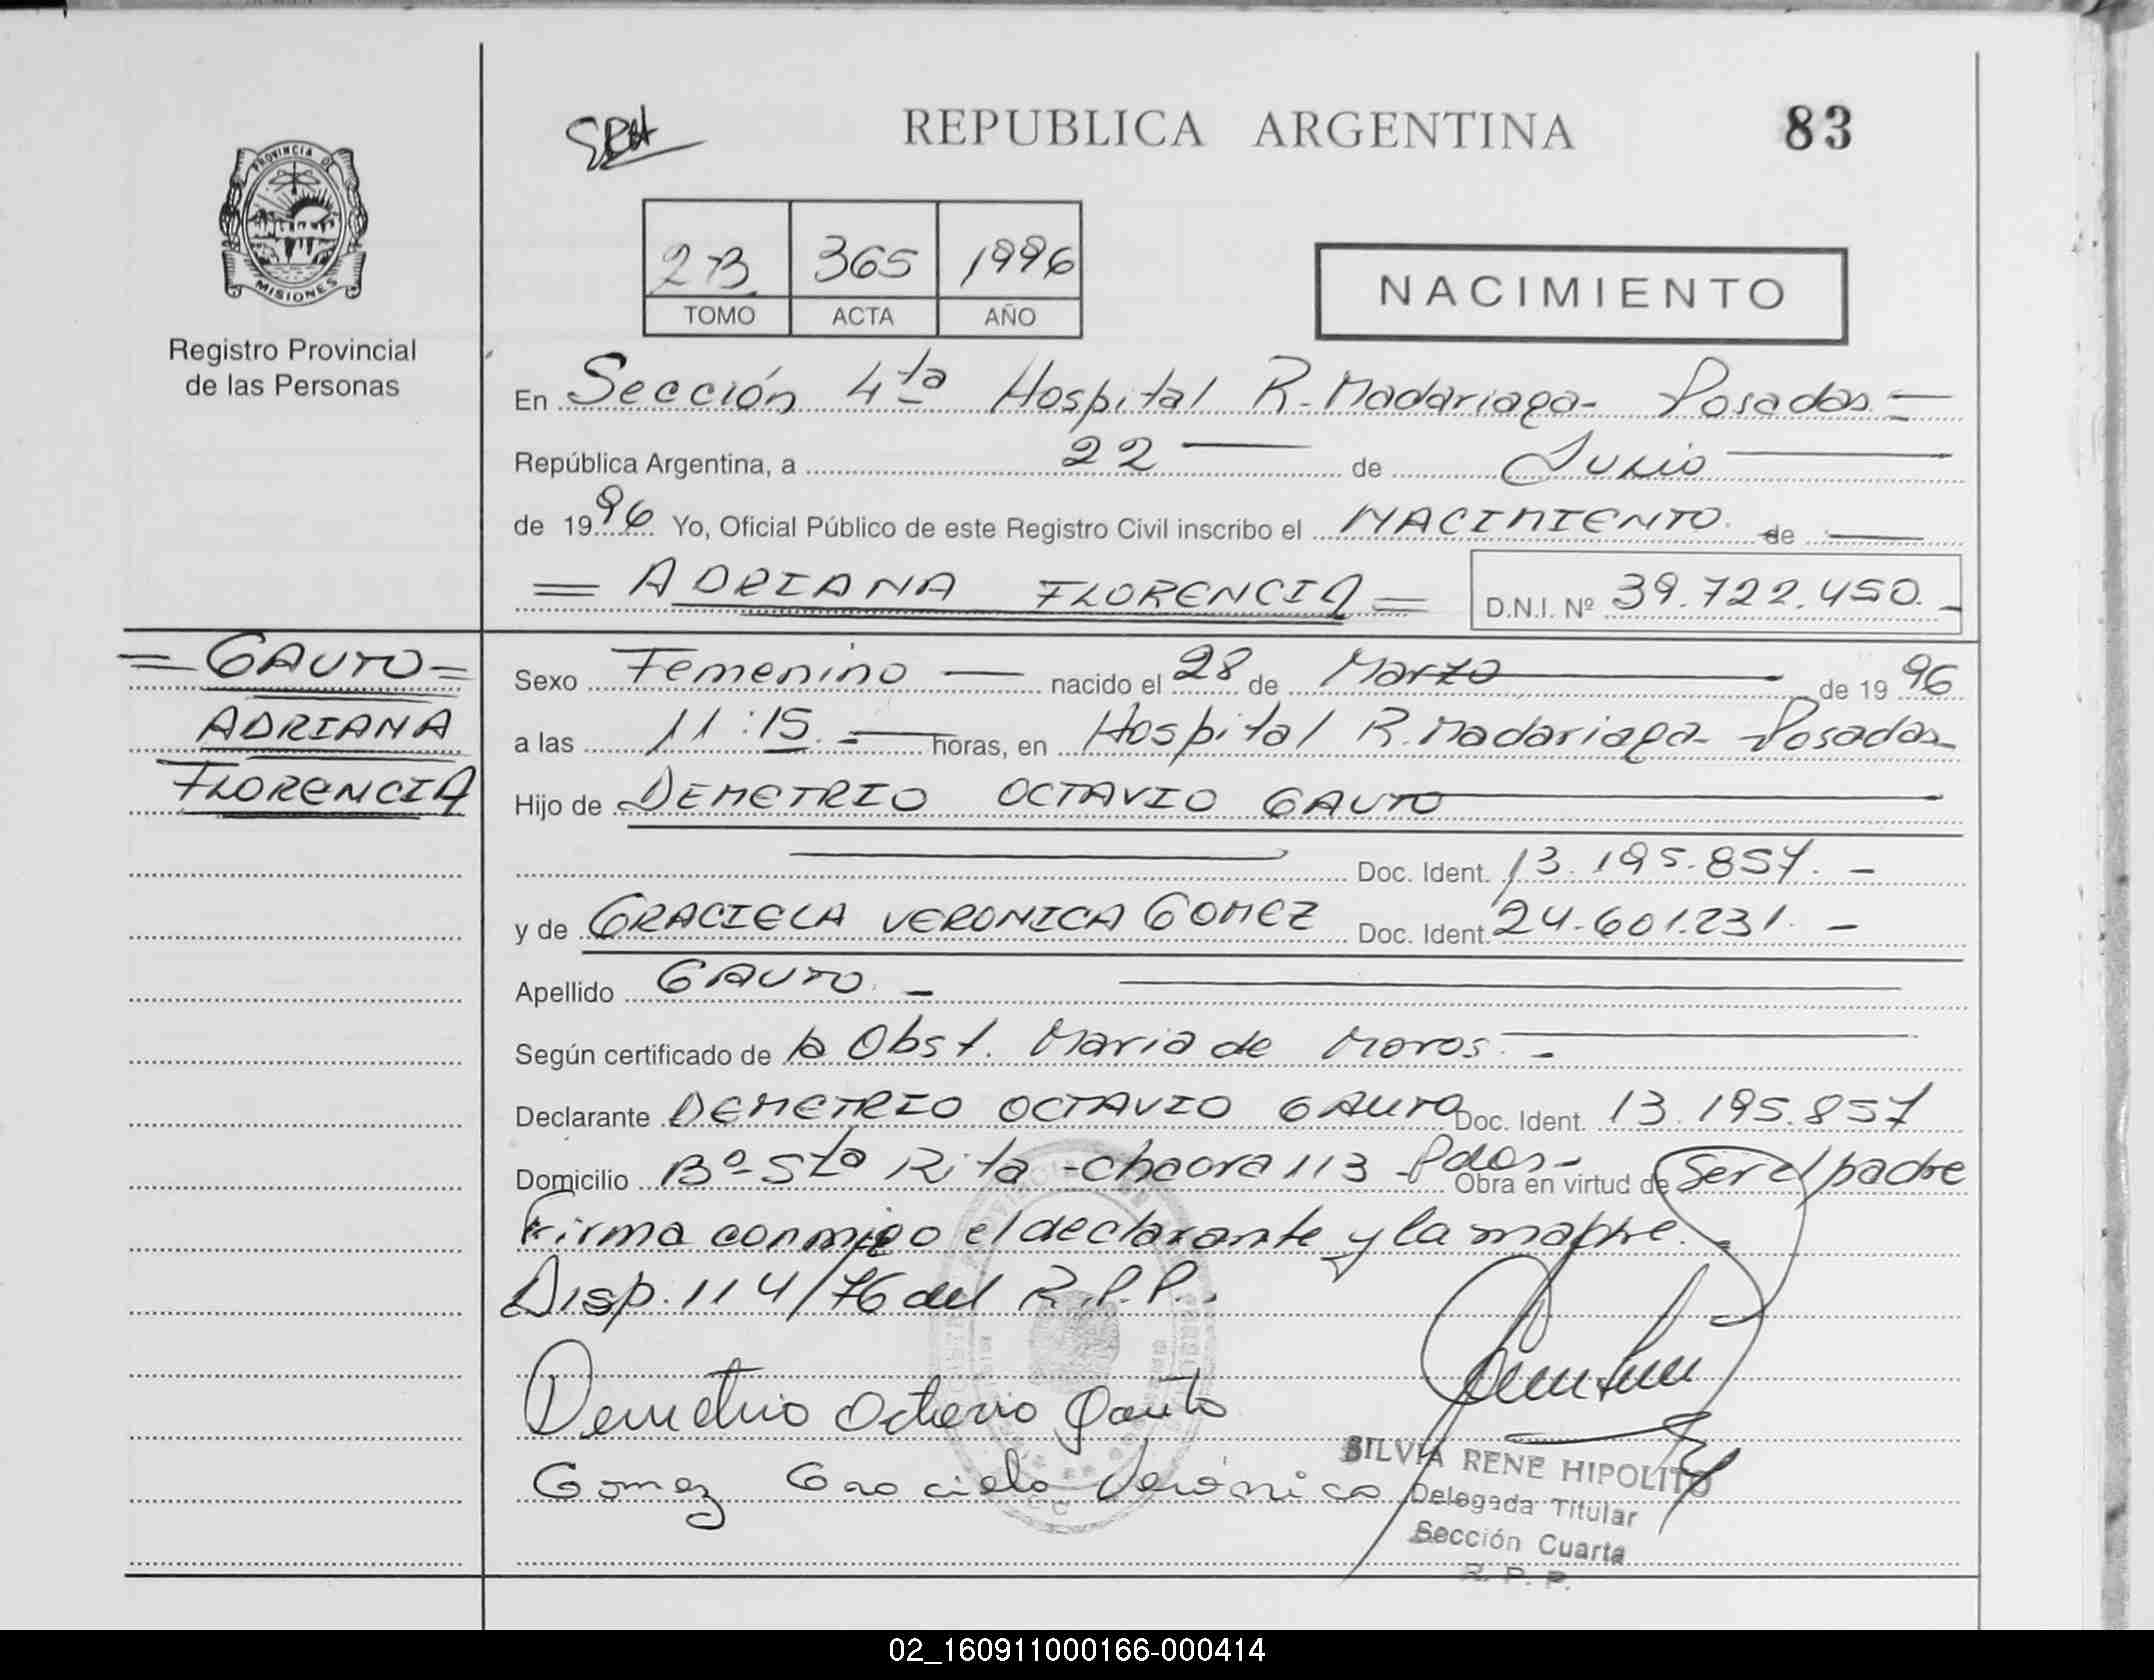 REPUBLICA ARGENTINA
83
PROVINCIA DE
MISIONES
Registro Provincial
de las Personas
2B 365 1996
TOMO ACTA AÑO
NACIMIENTO
En Sección 4ta Hospital R. Madariaga - Posadas
República Argentina, a 22 de Julio
de 1996 Yo, Oficial Público de este Registro Civil inscribo el NACIMIENTO de
= ADRIANA FLORENCIA =
D.N.I. Nº 39.722.450.-
= GAUTO =
ADRIANA
FLORENCIA
Sexo Femenino nacido el 28 de Marzo de 1996
a las 11:15 horas, en Hospital R. Madariaga - Posadas
Hijo de DEMETRIO OCTAVIO GAUTO
Doc. Ident. 13.195.857.-
y de GRACIELA VERONICA GOMEZ Doc. Ident. 24.601.231.-
Apellido GAUTO.-
Según certificado de la Obst. Maria de Moros.-
Declarante DEMETRIO OCTAVIO GAUTO Doc. Ident. 13.195.857
Domicilio Bº Sta Rita - chacra 113 - Pdas - Obra en virtud de Ser el padre
Firma conmigo el declarante y la madre.-
Disp. 114/76 del R.P.P.
Demetrio Octavio Gauto
Gomez Graciela Verónica
SILVIA RENE HIPOLITO
Delegada Titular
Sección Cuarta
R. P. P.
02_160911000166-000414